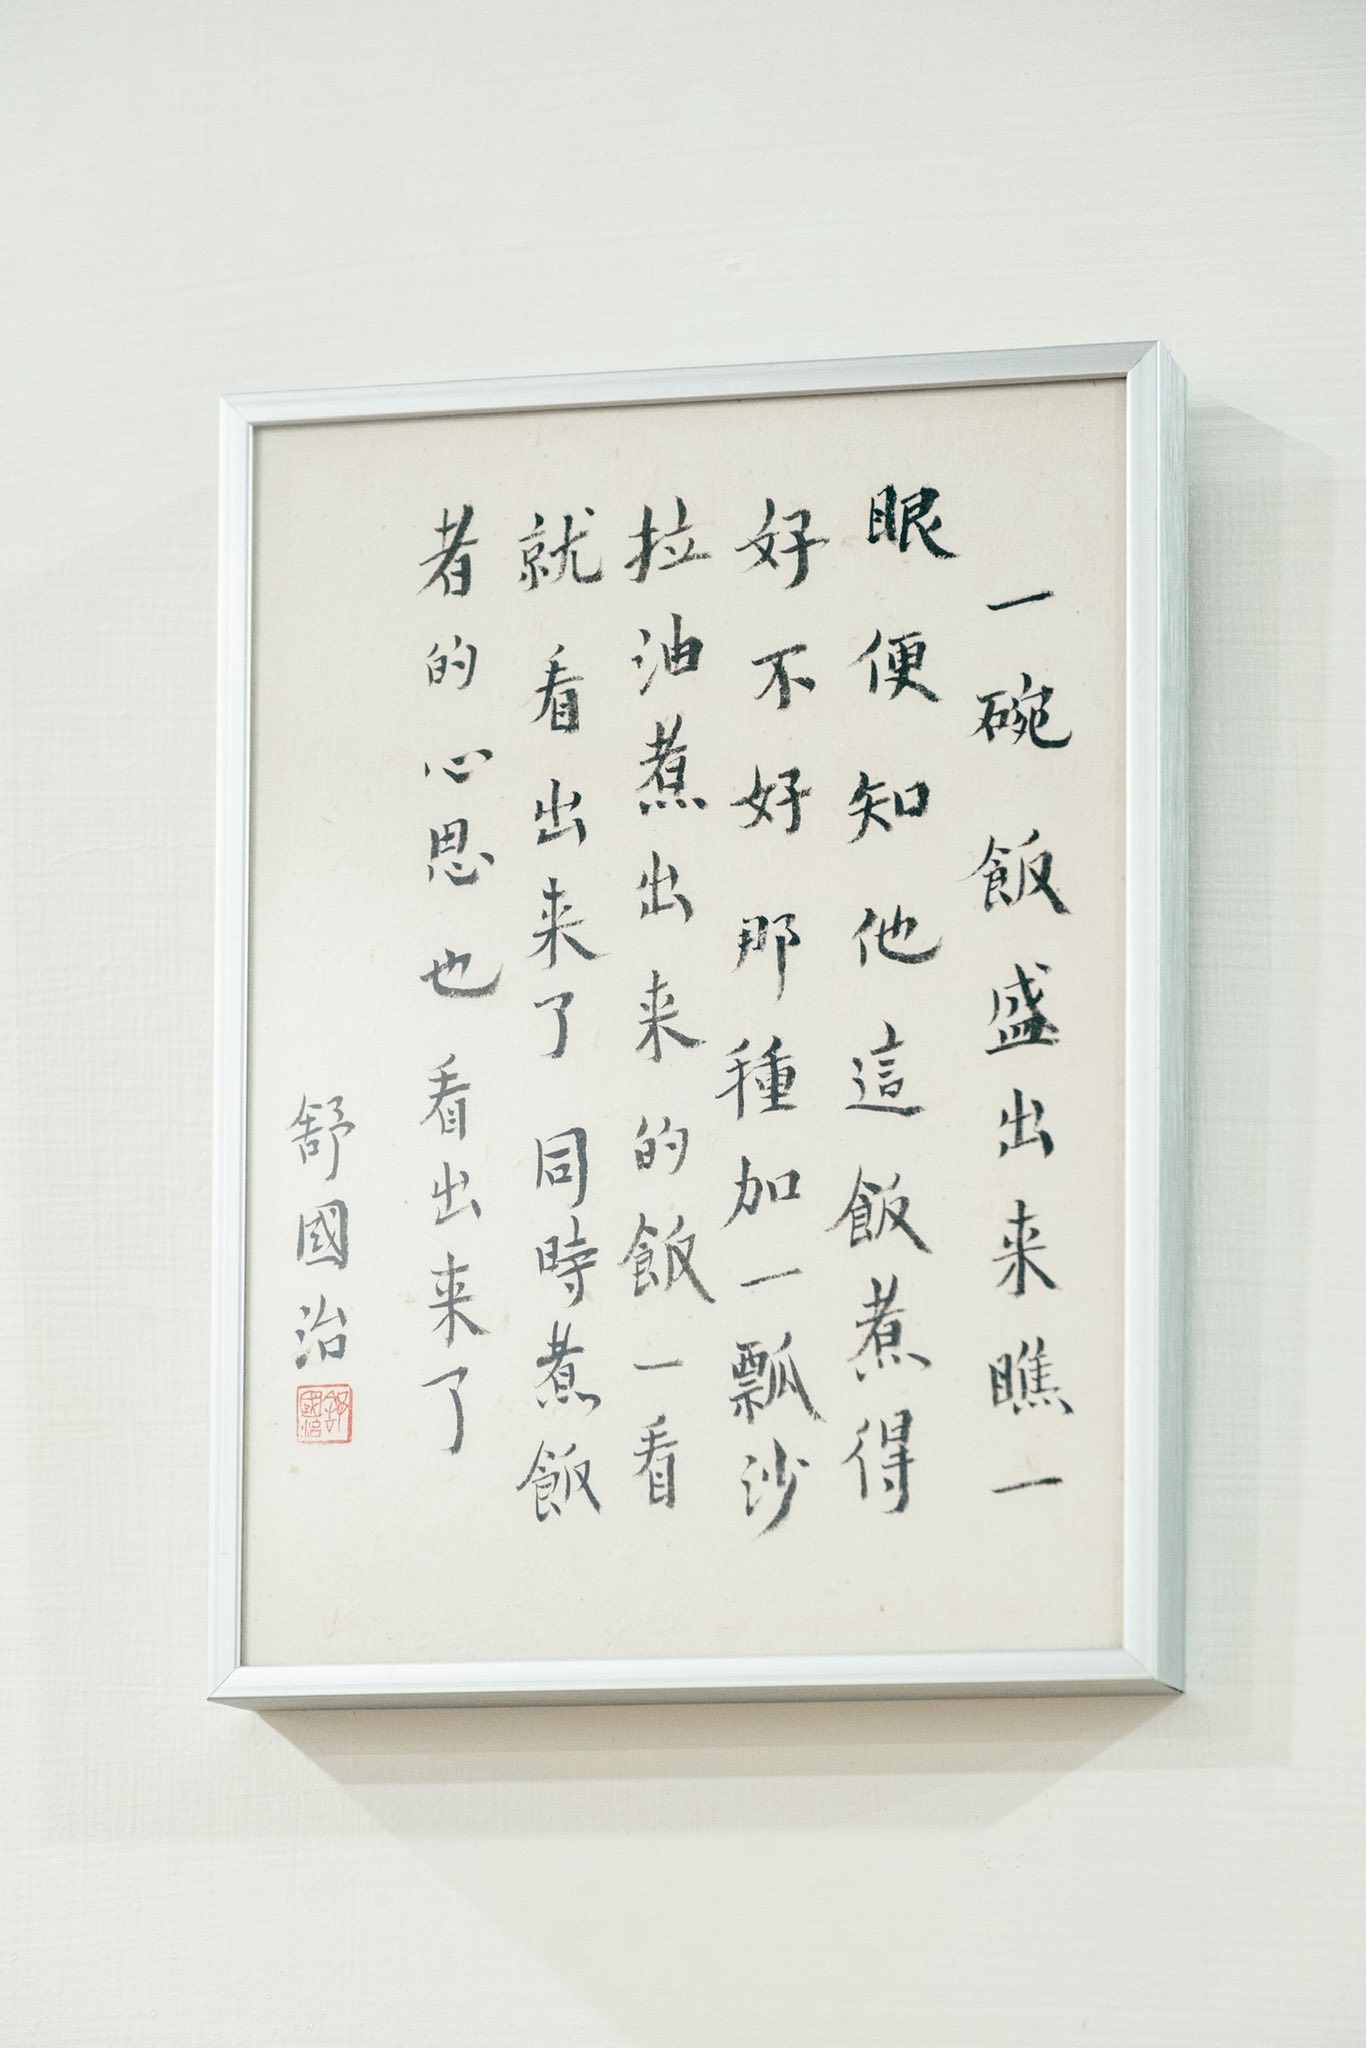 一碗飯盛出来瞧一
眼便知他這飯煮得
好不好那種加一瓢沙
拉油煮出来的飯一看
就看出来了同時煮飯
者的心思也看出来了
舒國治
舒國治